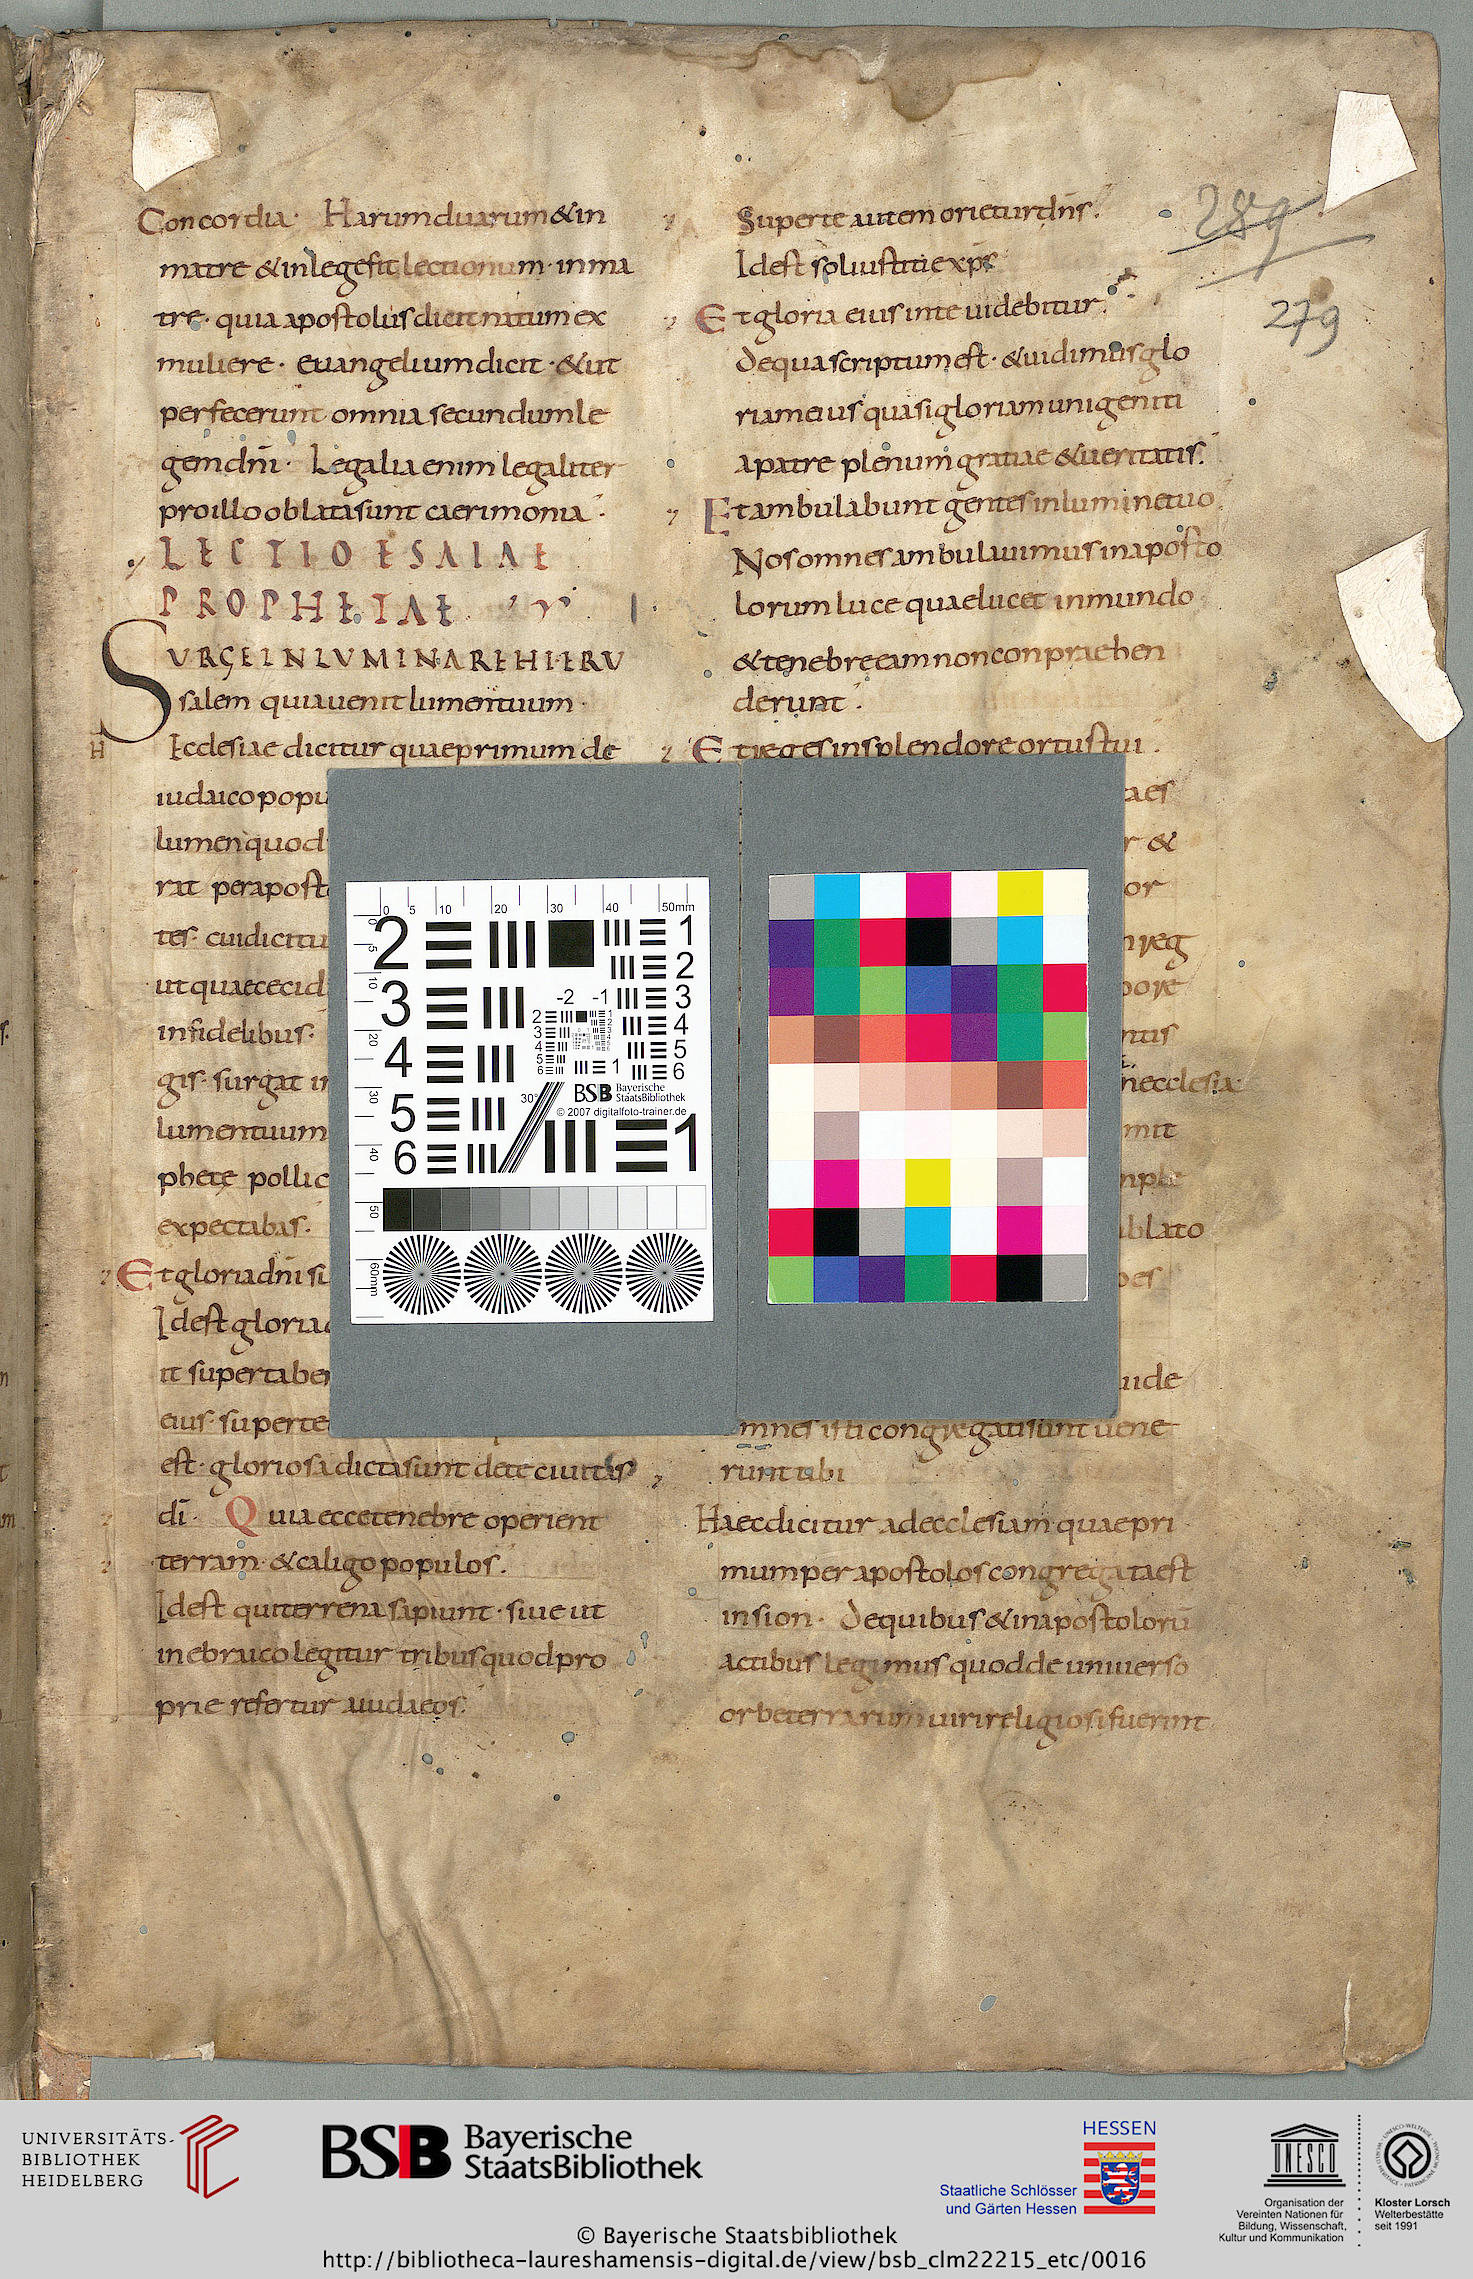 Concordia · Harum duarum & in
matre & in lege fit lectionum · in ma
tre · quia apostolus dicit natum ex
muliere · euangelium dicit · & ut
perfecerunt omnia secundum le
gem dn̄i · Legalia enim legaliter
pro illo oblata sunt caerimonia ·
LECTIO ESAIAE
PROPHETAE
SURGE INLUMINARE HIERU
salem quia uenit lumen tuum ·
Ecclesiae dicitur quae primum de
iudaico popu
lumen quod
rat per aposto
tes · cui dicitu
ut quae cecid
infidelibus ·
gis · surgat in
lumen tuum
phete pollic
expectabas ·
Et gloria dn̄i su
Id est gloria
it super taber
eius · super te
est · gloriosa dicta sunt de te ciuitas
dī · Quia ecce tenebre operient
terram · & caligo populos ·
Id est qui terrena sapiunt · siue ut
in ebraico legitur tribus quod pro
prie refertur ad iudaeos ·
Super te autem orietur dn̄s ·
Id est sol iustitie xp̄s
Et gloria eius in te uidebitur ·
De qua scriptum est · & uidimus glo
riam eius quasi gloriam unigeniti
a patre plenum gratiae & ueritatis ·
Et ambulabunt gentes in lumine tuo ·
Nos omnes ambulauimus in aposto
lorum luce quae lucet in mundo
& tenebre eam non conpraehen
derunt ·
Et reges in splendore ortus tui ·
aes
r &
or
n reg
pore
ntis
n ecclesia
mit
mple
ablato
oes
uide
mnes isti congregati sunt uene
runt tibi
Haec dicitur ad ecclesiam quae pri
mum per apostolos congregata est
in sion · De quibus & in apostolorū
actibus legimus quod de uniuerso
orbe terrarum uiri religiosi fuerint
289
279
0 5 10 20 30 40 50mm
0 5 10 20 30 40 50 60mm
2 3 4 5 6
1 2 3 4 5 6
-2 -1
30°
BSB Bayerische StaatsBibliothek
© 2007 digitalfoto-trainer.de
1
UNIVERSITÄTS-
BIBLIOTHEK
HEIDELBERG
BSB Bayerische
StaatsBibliothek
HESSEN
Staatliche Schlösser
und Gärten Hessen
UNESCO
Organisation der
Vereinten Nationen für
Bildung, Wissenschaft,
Kultur und Kommunikation
Kloster Lorsch
Welterbestätte
seit 1991
© Bayerische Staatsbibliothek
http://bibliotheca-laureshamensis-digital.de/view/bsb_clm22215_etc/0016